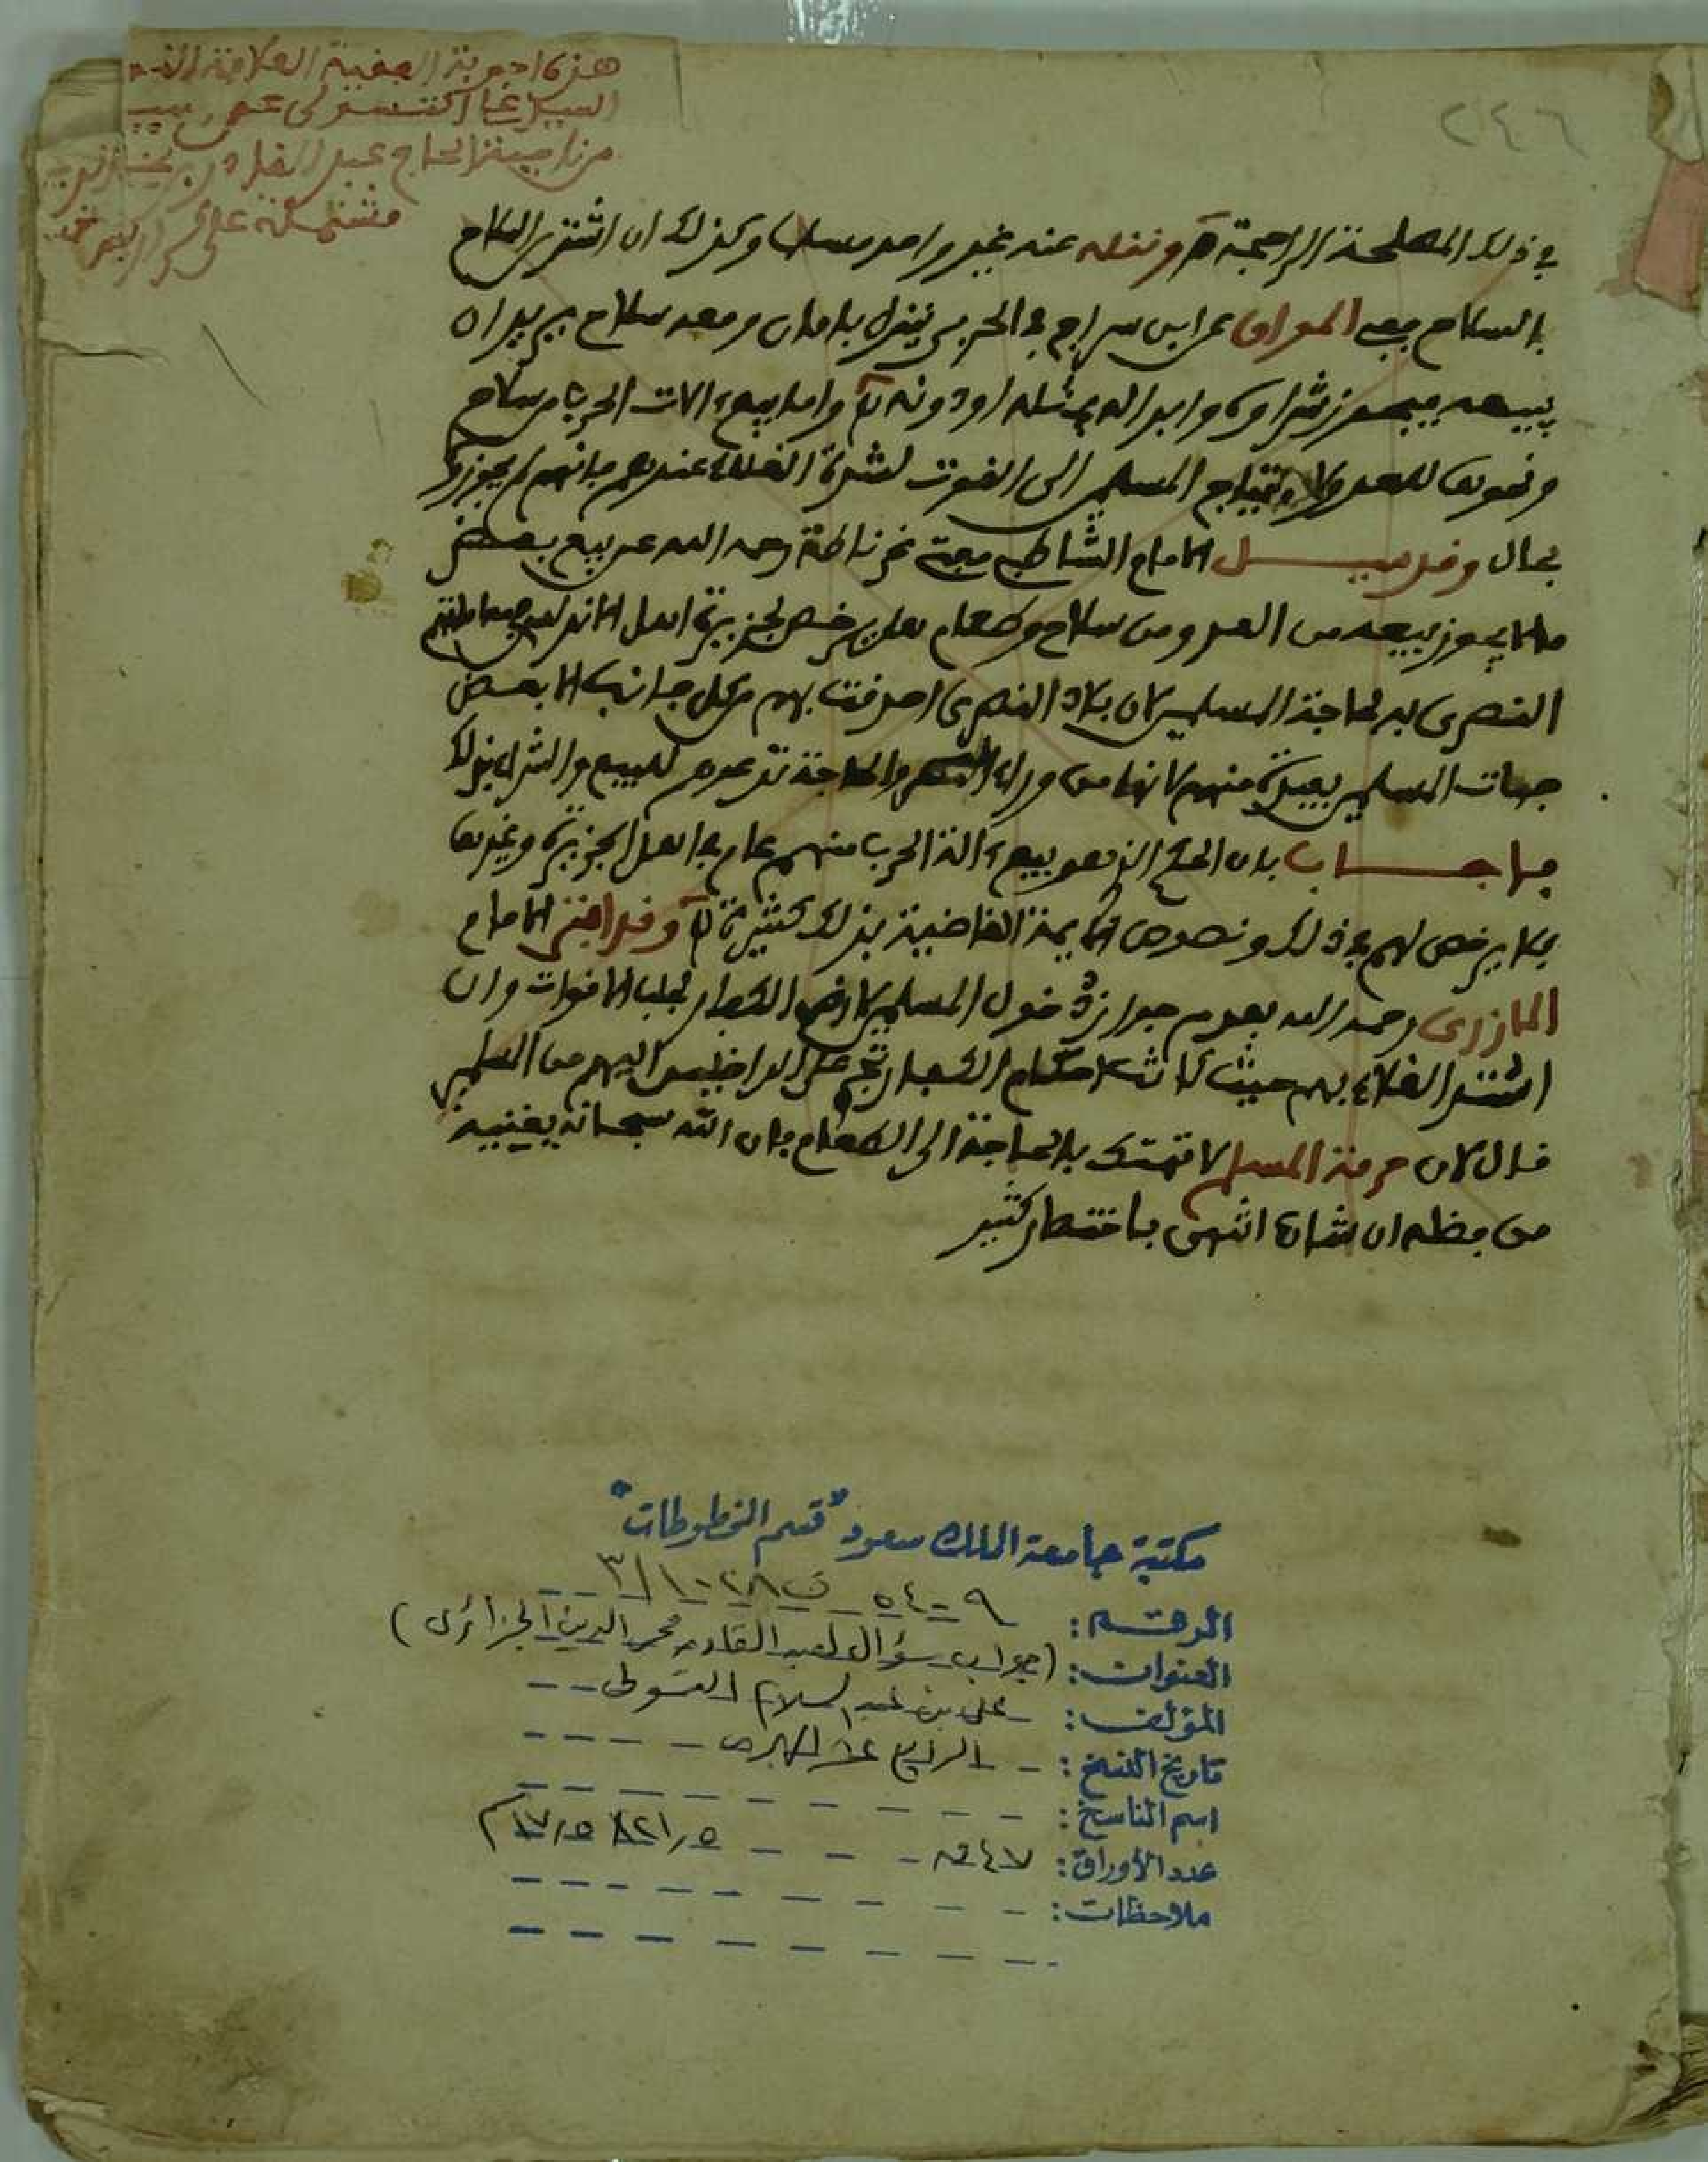 ٢٤٦
هذه اجوبة الفقيه العلامة
السيد علي التسولي عن
مزامينة الحاج عبد القادر بن محي الدين
مشتملة على
في ذلك المصلحة الراجحة ه ونقله عنه غير واحد مسلما وكذلك ان اشترى السلاح
بالسلاح ففي المواق عن ابن سراج في الحربي ينزل بامان ومعه سلاح يريد ان
يبيعه فيجوز شراؤه وابداله بمثله او دونه ه واما بيع الات الحرب من سلاح
ونحوها للعدو ولا يحتاج المسلمين الى القوت لشدة الغلاء عندهم فانهم لا يجوز
بحال وقد سئل الامام الشاطبي مفتي غرناطة رحمه الله عن بيع بعض
ما لا يجوز بيعه من العدو من سلاح وطعام هل يرخص لجزيرة اهل الاندلس
النصرى لحاجة المسلمين لان بلاد النصرى احدقت بهم من كل جانب الا بعض
جهات المسلمين بعيدة منهم لانها من وراء البحر والحاجة تدعوهم للبيع والشراء بذلك
فاجاب بان المنع الذي هو بيع ءالة الحرب منهم عام في اهل الجزيرة وغيرها
فلا يرخص لهم في ذلك ونصوص الايمة القاضية بذلك كثيرة ه وقد افتى الامام
المازري رحمه الله بعدم جواز دخول المسلمين لارض الكفار لجلب الاقوات وان
اشتد الغلاء بهم حيث كانت احكام الكفار تجري على الداخلين اليهم من المسلمين
قال لان حرمة المسلم لا تهتك بالحاجة الى الطعام فان الله سبحانه يغنيه
من فضله ان شاء انتهى باختصار كثير
مكتبة جامعة الملك سعود "قسم المخطوطات"
الرقم: ٥٤٠٩ ف ١٠٢٨/٣
العنوان: (جواب سؤال لعبد القادر محي الدين الجزائري)
المؤلف: علي بن عبد السلام التسولي
تاريخ النسخ: الرابع عشر الهجري
اسم الناسخ:
عدد الأوراق: ٤٧ ق ٢١٫٥ × ١٧٫٥ سم
ملاحظات: